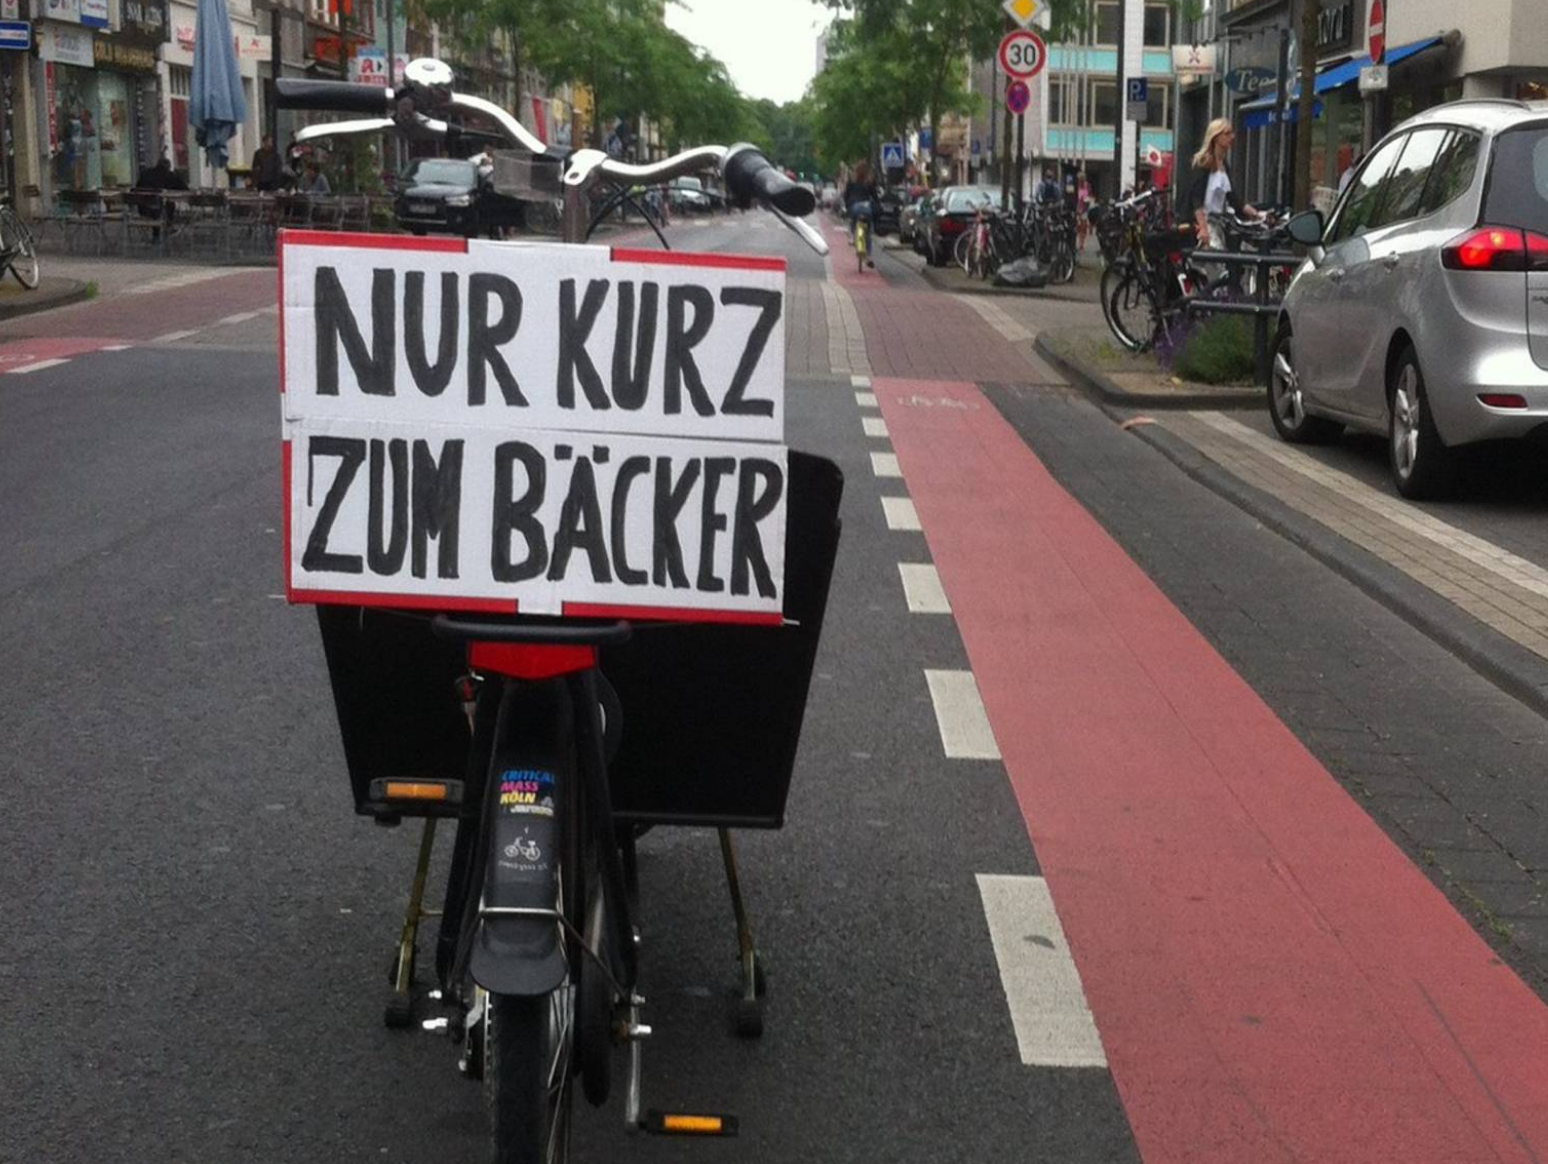 NUR KURZ
ZUM BÄCKER
CRITICAL
MASS
KÖLN
30
P